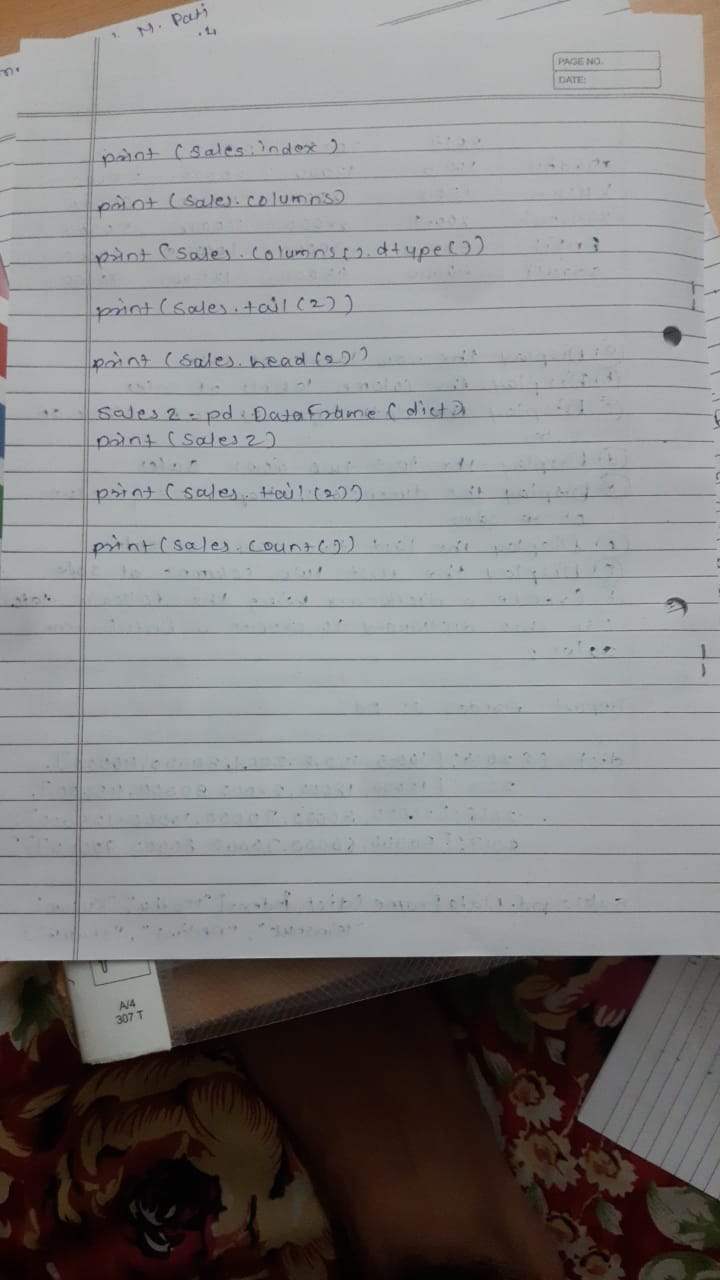 M. Pati
PAGE NO.
DATE:
print (sales.index)
print (sales.columns)
print (sales.columns().dtype())
print (sales.tail(2))
print (sales.head(2))
sales2 = pd.DataFrame (dict)
print (sales2)
print (sales.tail(2))
print (sales.count())
A/4
307 T